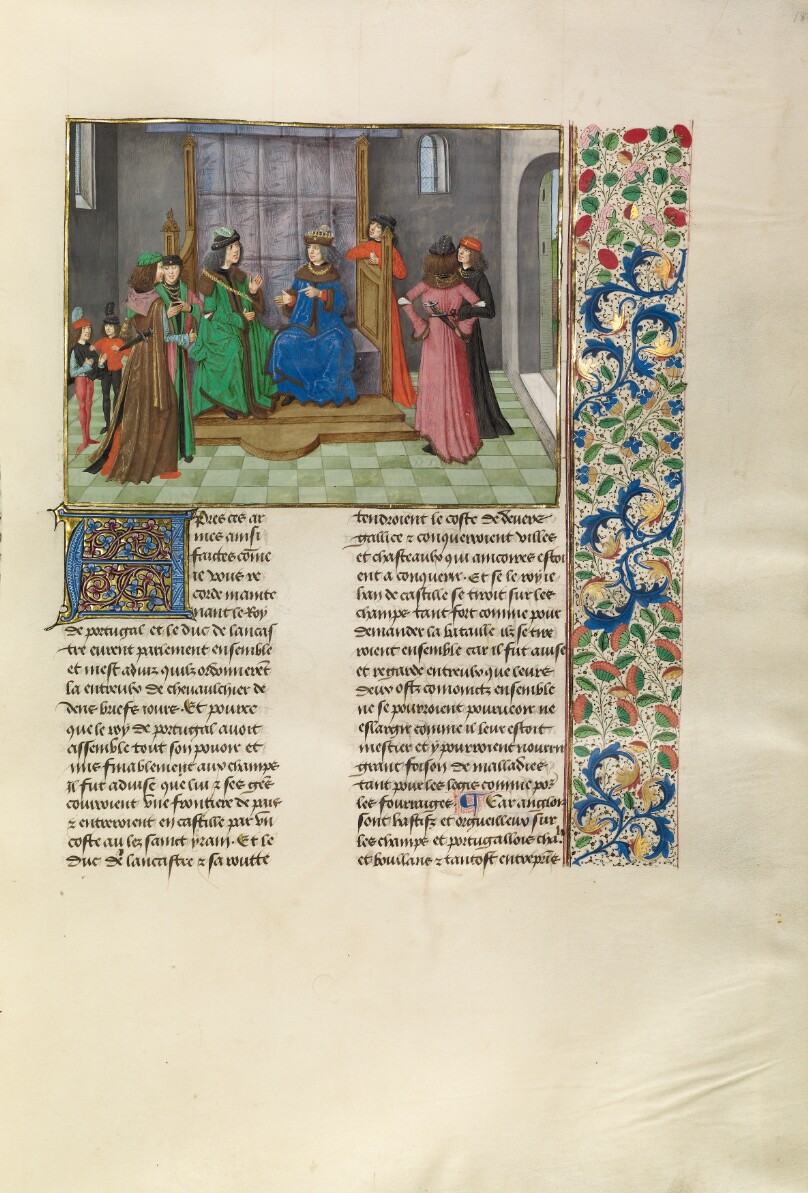 Apres ces ar
mes ainsi
faictes cõme
ie vous re
corde mainte
nant le Roy
de portugal et le duc de lancas
tre eurent parlement ensemble
et mest aduiz quilz ordonnerẽt
la entreulx de cheuaulchier de
dens briefz iours. Et pource
que le roy de portugal auoit
assemble tout son pouoir et
mis finablement aux champs
il fut aduise que lui z ses gẽs
couuroient vne frontiere de pais
z entreroient en castille par vn
coste au lez sainct yrain. Et le
Duc de lancastre z sa routte
tendroient le coste de
gallice z conquerroient villes
et chasteaulx qui ancores estoi
ent a conquerir. Et se le roy ie
han de castille se troit sur les
champs tant fort comme pour
demander la bataille ilz se tire
roient ensemble car il fut auise
et regarde entreulx que leurs
deux ostz comoinctz ensemble
ne se pourroient pourueoir ne
eslargir comme il leur estoit
mestier et y pourroient nourir
grant foison de malladies
tant pour les logis comme por
les fourraiges. ¶ Car anglois
sont hastifz et orgueilleux sur
les champs et portugallois chaͧlx
et boullans z tantost entreprins